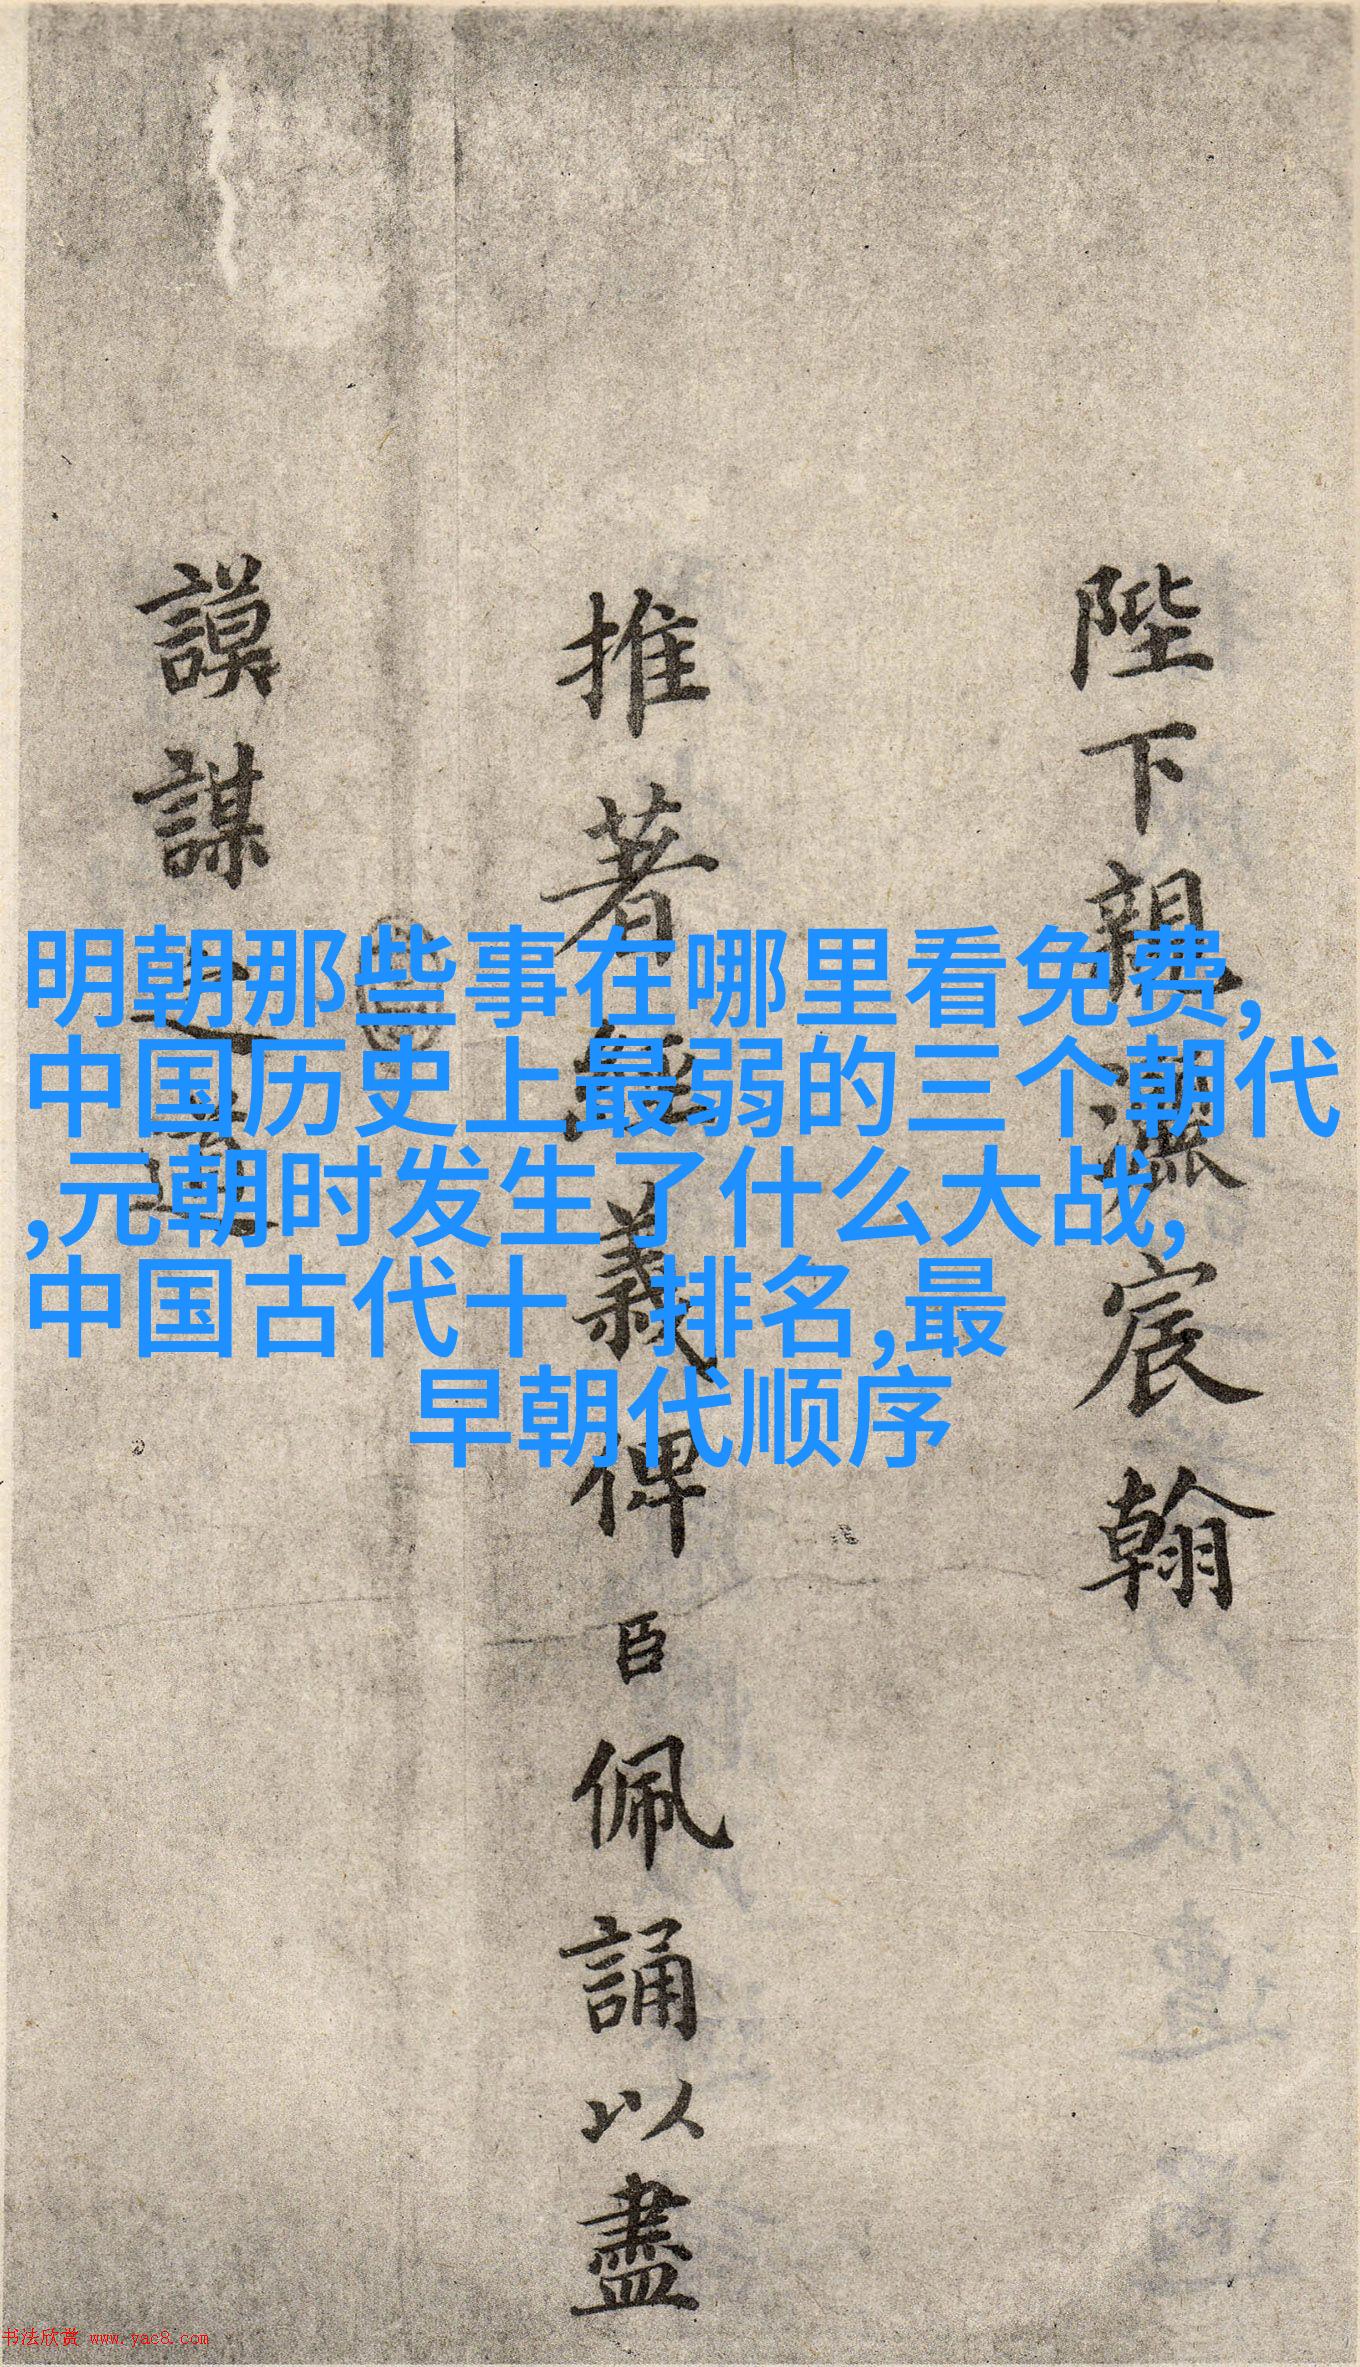 陛下親灑宸翰
推著經義俾臣佩誦以盡
謨謀之道
明朝那些事在哪里看免费,
中国历史上最弱的三个朝代
,元朝时发生了什么大战,
中国古代十 排名,最
早朝代顺序
书法欣赏 www.yac8.com